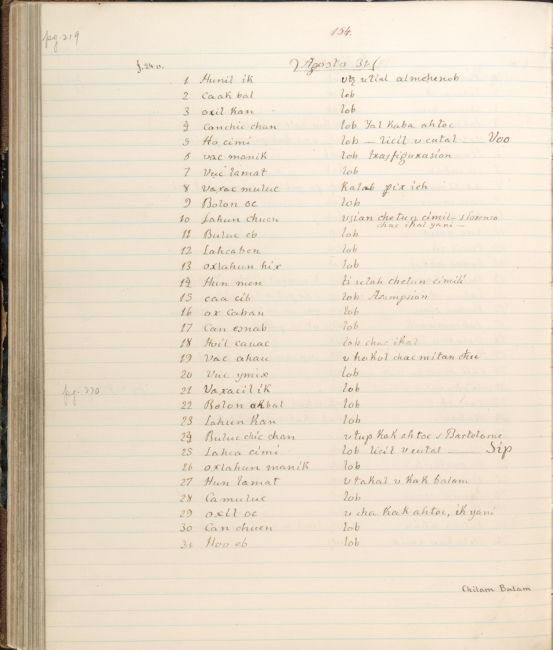 154.
pg. 219
f. 24. v. Agosto 31.
1 Hunil ik utz utial almehenob
2 Caak bal lob
3 oxil Kan lob
4 Canchic chan lob Yal Kaba ahtoc
5 Ho cimi lob — licil u cutal — Voo
6 vac manik lob trasfigurasion
7 Vuc lamat lob
8 Vaxac muluc Kalab pix ich
9 Bolon oc lob
10 Lahun chuen vsian chetun cimil – s lorenso
chac ikal yani —
11 Buluc eb lob
12 Lahcaben lob
13 oxlahun hix lob
14 Hun men ti ulah chetun cimili
15 caa cib lob Asumpsion
16 ox Caban lob
17 Can esnab lob
18 Hoil cauac lob chac ikal
19 Vac ahau u hokol chac mitan
20 Vuc ymix lob
pg. 220
21 Vaxacil ik lob
22 Bolon akbal lob
23 Lahun Kan lob
24 Buluc chic chan v tup Kak ahtoc s Bartolome
25 Lahca cimi lob licil v cutal — Sip
26 oxlahun manik lob
27 Hun lamat v takal v Kak balam
28 Camuluc lob
29 oxil oc v cha Kak ahtoc, ik yani
30 Can chuen lob
31 Hoo eb lob
Chilam Balam